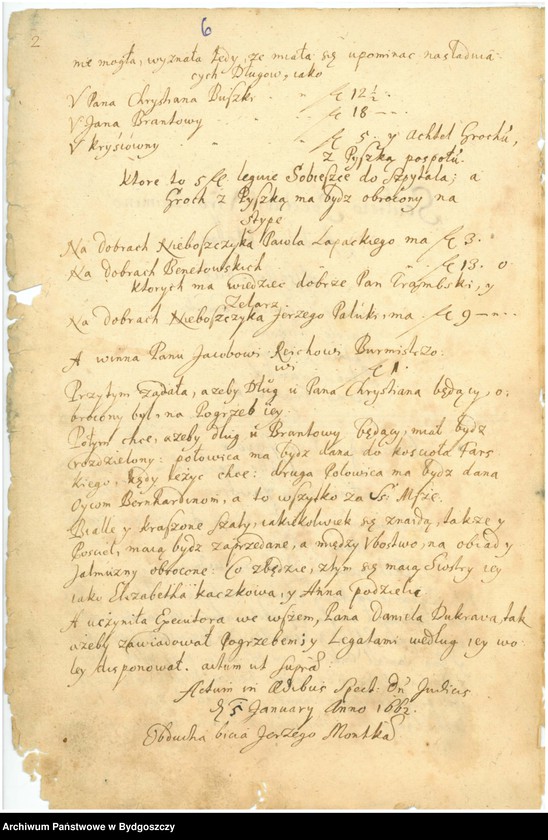 2
6
nie mogła, wyznała tedy, że miała się upominac następuią
cych Długow, iako
V Pana Chrystiana Duszki fl 12 1/2
V Jana Brantowy fl 18
V kryśiówny fl 5. y Achtel Grochu,
z Pyszką pospołu.
ktore to 5 fl leguie Sobieszce do Szpitala; a
Groch z Pyszką ma bydz obrocony na
Stype
Na dobrach Nieboszczyka Pawla Lapackiego ma fl 3.
Na dobrach Benetowskich fl 13. o
ktorych ma wiedziec dobrze Pan, y
Zelarz.
Na dobrach Nieboszczyka Jerzego Paluki, ma fl 9
A winna Panu Jacobowi Reichowi Burmistrzo:
wi fl 1.
Przytym żądała, ażeby Dług u Pana Chrystiana będący, o,
brocony był, na Pogrzeb iey.
Potym chce, ażeby dług u Brantowy będący, miał bydz
rozdzielony: połowica ma bydz dana do koscioła Fars
kiego, kędy leżyc chce: druga Połowica ma bydz dana
Oycom Bernhardinom, a to wszytko za Mszę.
Bialle y kraszone szaty, iakiekolwiek się znaidą, także y
Posciel, maią bydz zaprzedane, a między Vbostwo, na obiad y
Jalmużny obrocone: Co zbędzie, z tym się maią Siostry iey
iako Elizabetha kaczkowa, y Anna podzielic
A uczyniła Executora we wszem, Pana Daniela Dukrawa, tak
ażeby zawiadował Pogrzebem, y Legatami według iey wo-
ley disponował. actum ut supra
Actum in Ædibus Spect: Dn Judicis
d 5 January Anno 1662.
Obducha bicia Jerzego Montka
Archiwum Państwowe w Bydgoszczy